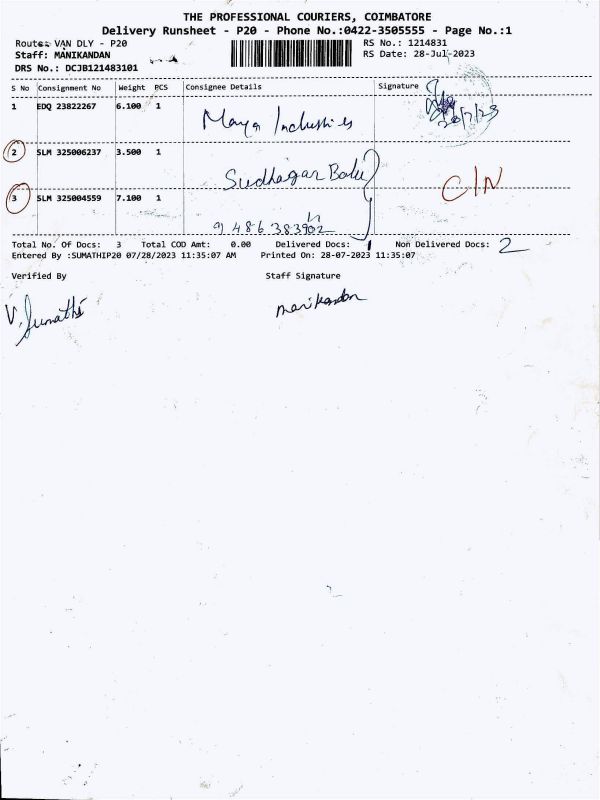 THE PROFESSIONAL COURIERS, COIMBATORE
Delivery Runsheet - P20 - Phone No.:0422-3505555 - Page No.:1
Route: VAN DLY - P20
RS No.: 1214831
Staff: MANIKANDAN
RS Date: 28-Jul-2023
DRS No.: DCJB121483101
S No Consignment No Weight PCS Consignee Details Signature
1 EDQ 23822267 6.100 1 Maya Industries
2 SLM 325006237 3.500 1
Sudhagar Balu C/N
3 SLM 325004559 7.100 1
Total No. Of Docs: 3 Total COD Amt: 0.00 Delivered Docs: 1 Non Delivered Docs: 2
Entered By :SUMATHIP20 07/28/2023 11:35:07 AM Printed On: 28-07-2023 11:35:07
Verified By Staff Signature
V. Sumathi manikandan